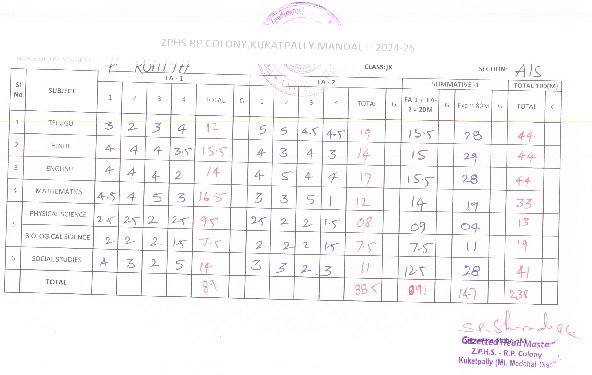 ZPHS RP COLONY,KUKATPALLY MANDAL :: 2024-25
NAME OF THE STUDENT: P. ROHITH CLASS:IX SECTION: A/S
Sl No SUBJECT FA - 1 FA - 2 SUMMATIVE -1 TOTAL 100(M)
1 2 3 4 TOTAL G 1 2 3 4 TOTAL G FA 1 + FA- 2 - 20M G Exam 80M G TOTAL
1 TELUGU 3 2 3 4 12 5 5 4.5 4.5 19 15.5 28 44
2 HINDI 4 4 4 3.5 15.5 4 3 4 3 14 15 29 44
3 ENGLISH 4 4 4 2 14 4 5 4 4 17 15.5 28 44
4 MATHEMATICS 4.5 4 5 3 16.5 3 3 5 1 12 14 19 33
5 PHYSICAL SCIENCE 2.5 2.5 2 2.5 9.5 2.5 2 2 1.5 08 09 04 13
BIOLOGICAL SCIENCE 2 2 2 1.5 7.5 2 2 2 1.5 7.5 7.5 11 19
6 SOCIAL STUDIES 4 3 2 5 14 3 3 2 3 11 12.5 28 41
TOTAL 89 88.5 891 147 238
Gazetted Head Master
Z.P.H.S. - R.P. Colony
Kukatpally (M), Medchal Dist